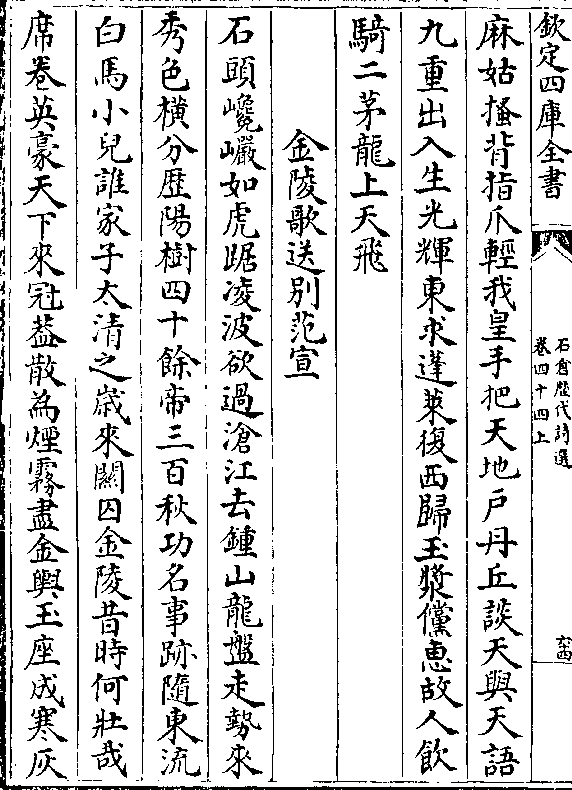 欽定四庫全書
石倉歷代詩選
卷四十四上
六十四
麻姑搔背指爪輕我皇手把天地戶丹丘談天與天語
九重出入生光輝東求蓬萊復西歸玉漿儻惠故人飲
騎二茅龍上天飛
金陵歌送別范宣
石頭巉巗如虎踞凌波欲過滄江去鍾山龍盤走勢來
秀色橫分歷陽樹四十餘帝三百秋功名事跡隨東流
白馬小兒誰家子太清之歲來關囚金陵昔時何壯哉
席卷英豪天下來冠葢散為煙霧盡金輿玉座成寒灰